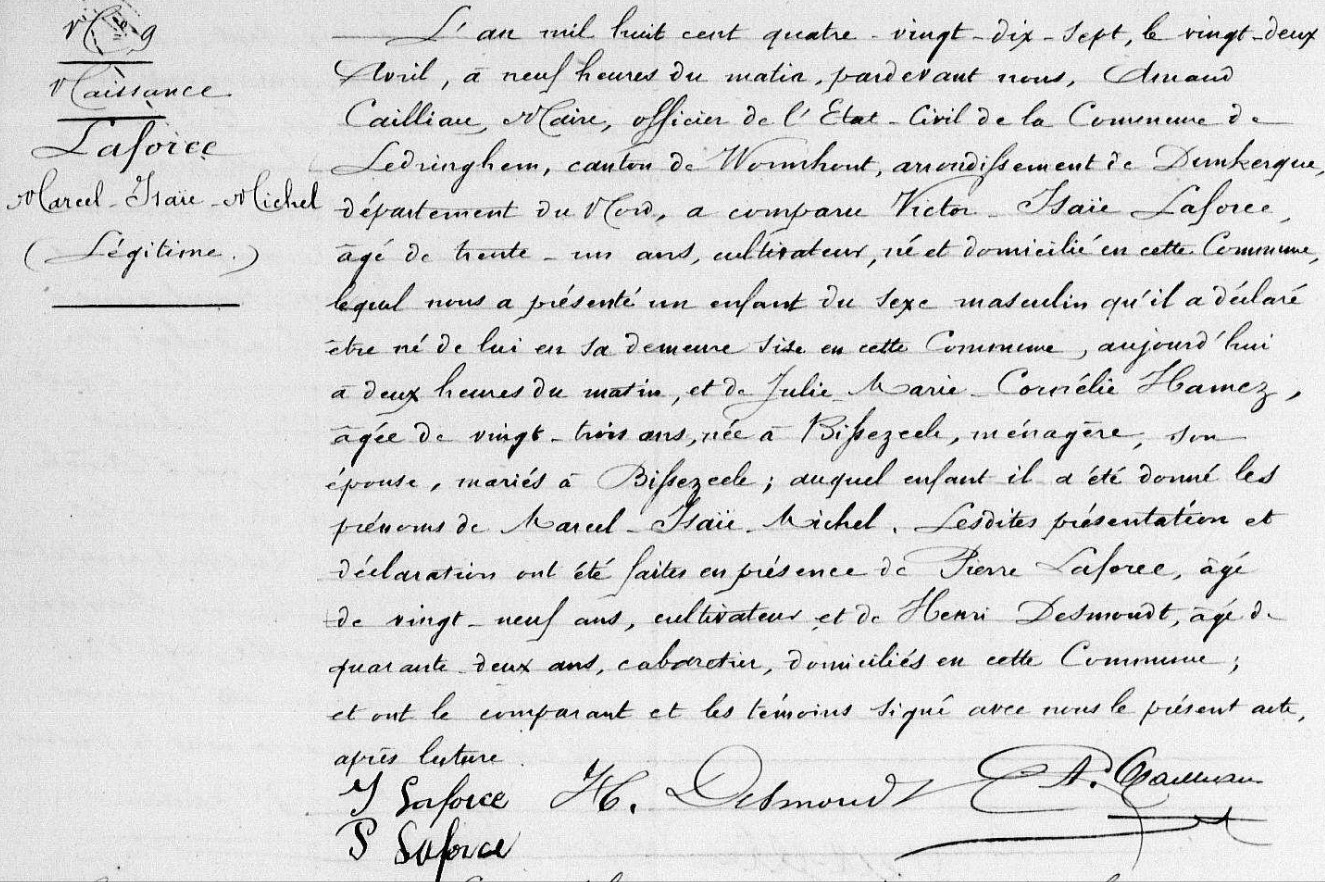 N° 9
Naissance
Laforce
Marcel-Isaïe-Michel
(Légitime.)
L'an mil huit cent quatre-vingt-dix-sept, le vingt-deux
Avril, à neuf heures du matin, pardevant nous, Amand
Cailliau, Maire, officier de l'Etat-Civil de la Commune de
Ledringhem, canton de Wormhout, arrondissement de Dunkerque,
département du Nord, a comparu Victor-Isaïe Laforce,
âgé de trente-un ans, cultivateur, né et domicilié en cette Commune,
lequel nous a présenté un enfant du sexe masculin qu'il a déclaré
être né de lui en sa demeure sise en cette Commune, aujourd'hui
à deux heures du matin, et de Julie-Marie-Cornélie Hamez,
âgée de vingt-trois ans, née à Bissezeele, ménagère, son
épouse, mariés à Bissezeele; auquel enfant il a été donné les
prénoms de Marcel-Isaïe-Michel. Lesdites présentation et
déclaration ont été faites en présence de Pierre Laforce, âgé
de vingt-neuf ans, cultivateur et de Henri Desmoudt, âgé de
quarante-deux ans, cabaretier, domiciliés en cette Commune;
et ont le comparant et les témoins signé avec nous le présent acte,
après lecture.
I Laforce H. Desmoudt A. Cailliau
P Laforce